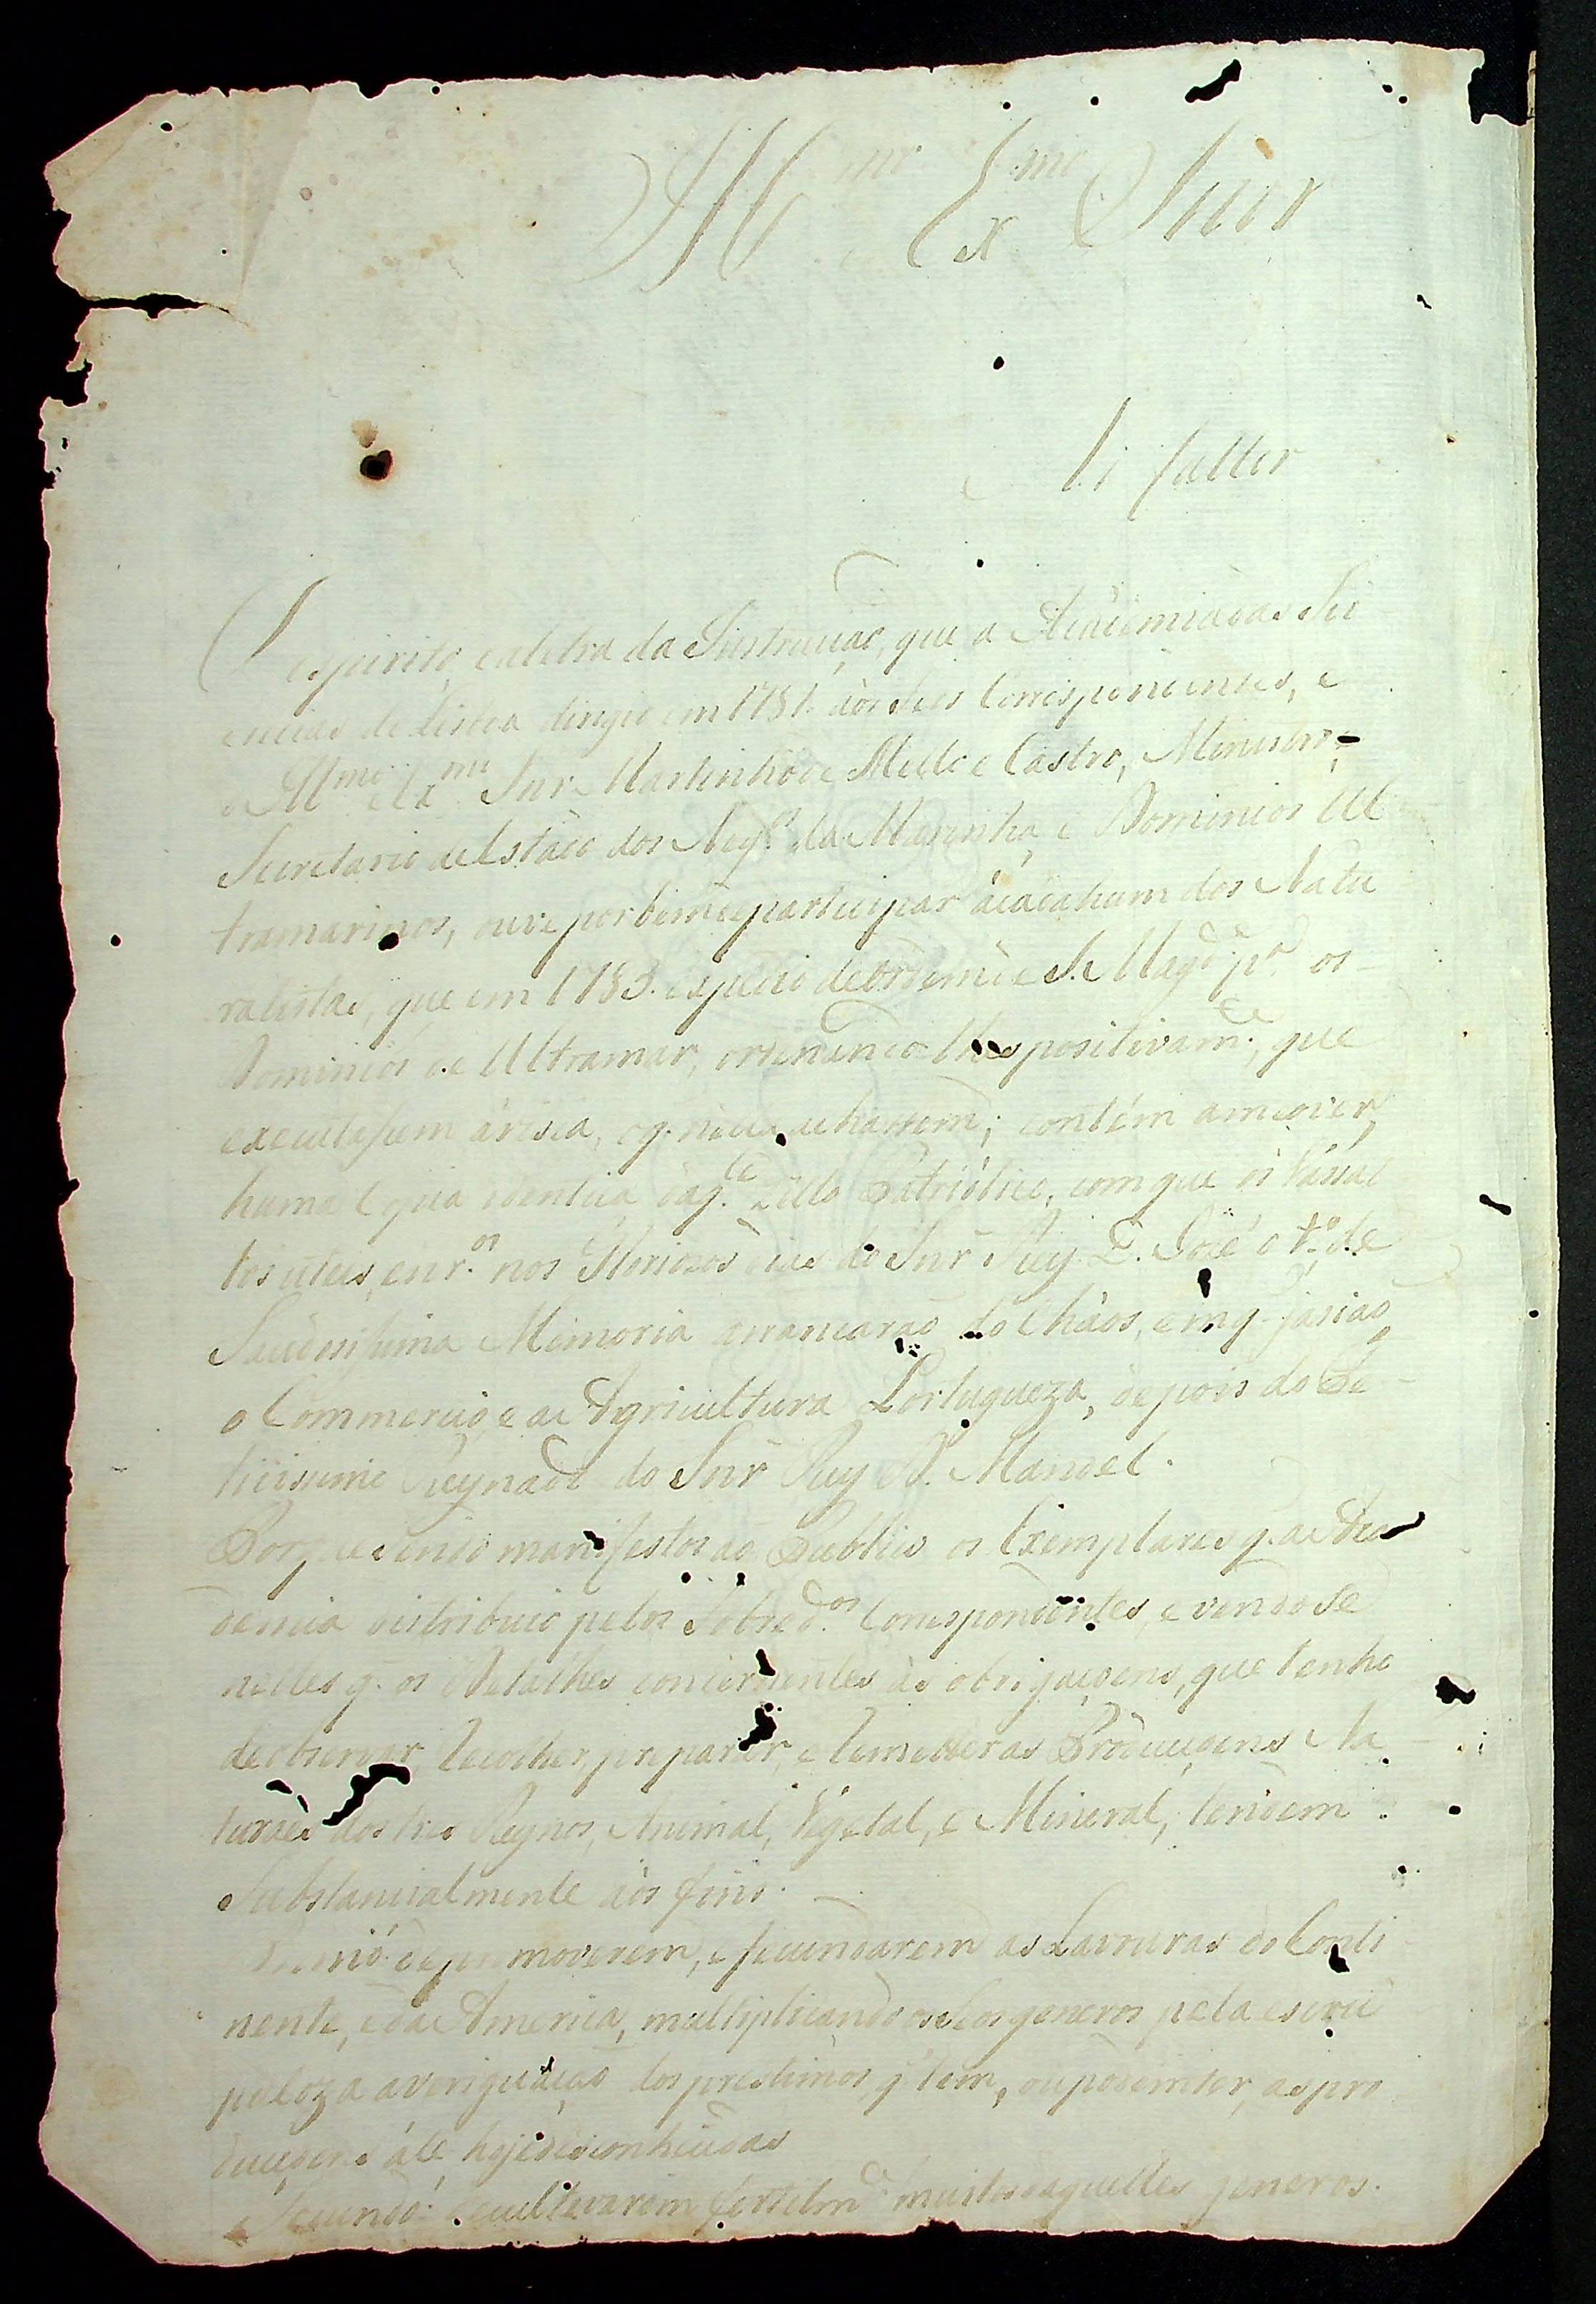 Ill.mo Ex.mo Snr
O espirito, e a letra da Instrucção, que a Academia das Sci
encias de Lisboa dirigio em 1781. aos seos Correspondentes, e
o Ill.mo e Ex.mo Snr Martinho de Mello e Castro, Ministro, e
Secretario de Estado dos Neg.os da Marinha, e Dominios Ul
tramarinos, ouve por bem de participar a cada hum dos Natu
ralistas, que em 1783. expedio de ordem de S. Mag.de p.a os
Dominios de Ultramar, ordenando lhes positivam.te, que
executassem á risca, o q. nella achassem; contém a meo ver
huma Copia identica daq.le Zello Patriótico, com que os Vassal
los uteis, e nr.os nos Gloriozos dias do Snr Rey D. José o 1.o de
Saudosissima Memoria arrancarão do Cháos, em q. jasião
o Commercio, e a Agricultura Portugueza, depois do Fe
licissimo Reynado do Snr Rey D. Manoel.
Porque sendo manifestos ao Publico os Exemplares q. a Aca
demia distribuio pelos sobred.os Correspondentes, e vendo se
nelles q. os Detalhes concernentes ás obrigaçoens, que tenho
de observar, recolher, preparar, e remetter as Producçoens Na
turáes dos tres Reynos, Animal, Vegetal, e Mineral, tendem
Substancialmente aos fins.
de promoverem, e fecundarem as Lavouras do Conti
nente, e da America, multiplicando os seos generos pela escru
puloza averiguação dos prestimos q. tem, ou podem ter, as pro
ducçoens até hoje desconhecidas
Segundo: de cultivarem fertilm.te muitos daquelles generos.